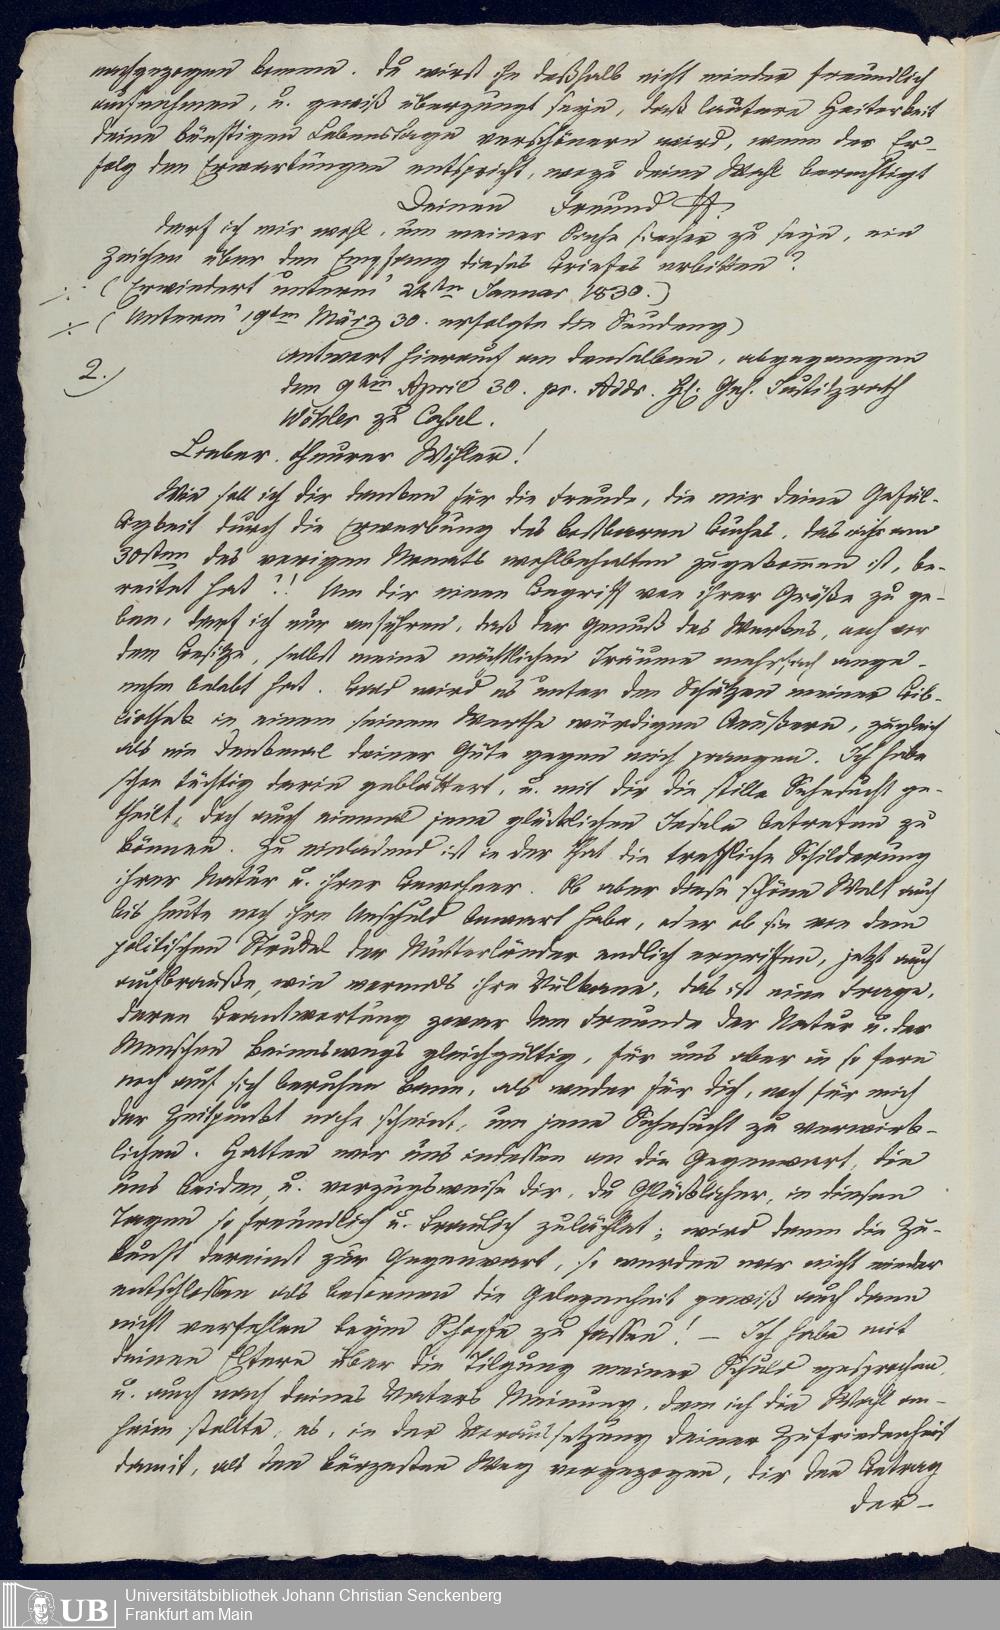 nachgezogen komme. Du wirst ihn deßhalb nicht minder freundlich
aufnehmen, u. gewiß überzeugt seyn, daß lautere Heiterkeit
deine künftigen Lebenstage verschönern wird, wenn der Er-
folg den Erwartungen entspricht, wozu deine Wahl berechtigt
Deinen Freund
Darf ich mir wohl, um meiner Sache sicher zu seyn, ein
Zeichen über den Empfang dieses Briefes erbitten?
(Erwiedert unterm 24ten Januar 1830.)
(Unterm 19ten März 30. erfolgte die Sendung)
2.) Antwort hierauf an denselben, abgegangen
den 9ten April 30. pr. Addr. H. Geh. Justizrath
Wöhler zu Cassel.
Lieber theurer Wöhler!
Wie soll ich dir danken für die Freude, die mir deine Gefäl-
ligkeit durch die Erwerbung des kostbaren Buches, das mir am
30sten des vorigen Monats wohlbehalten zugekommen ist, be-
reitet hat?! Um dir einen Begriff von ihrer Größe zu ge-
ben, darf ich nur anführen, daß der Genuß des Werkes, noch vor
dem Besitze, selbst meine nächtlichen Träume mehrfach ange-
nehm belebt hat. Bald wird es unter den Schätzen meiner Bib-
liothek in einem seinem Werthe würdigen Aeußern, zugleich
als ein Denkmal deiner Güte gegen mich prangen. Ich habe
schon tüchtig darin geblättert, u. mit dir die stille Sehnsucht ge-
theilt, doch auch einmal jene glücklichen Inseln betreten zu
können. Zu einladend ist in der That die treffliche Schilderung
ihrer Natur u. ihrer Bewohner. Ob aber diese schöne Welt auch
bis heute noch ihre Unschuld bewart habe, oder ob sie von dem
politischen Strudel der Mutterländer endlich ergriffen, jetzt auch
aufbrauße, wie vormals ihre Vulkane, das ist eine Frage,
deren Beantwortung zwar dem Freunde der Natur u. der
Menschen keineswegs gleichgültig, für uns aber in so fern
noch auf sich beruhen kann, als weder für dich, noch für mich
der Zeitpunkt nahe scheint, um jene Sehnsucht zu verwirk-
lichen. Halten wir uns indessen an die Gegenwart, die
uns beiden, u. vorzugsweise dir, du Glücklicher, in diesen
Tagen so freundlich u. traulich zulächlet; wird dann die Zu-
kunft dereinst zur Gegenwart, so werden wir nicht minder
entschlossen als besonnen die Gelegenheit gewiß auch dann
nicht verfehlen beym Schopfe zu fassen! – Ich habe mit
deinen Eltern über die Tilgung meiner Schuld gesprochen,
u. auch nach deines Vaters Meinung, dem ich die Wahl an-
heim stellte, es, in der Voraussetzung deiner Zufriedenheit
damit, als den kürzesten Weg vorgezogen, dir den Betrag
der-
Universitätsbibliothek Johann Christian Senckenberg
Frankfurt am Main
UB